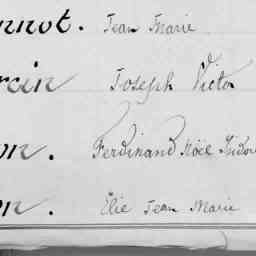 nnot. Jean Marie
rin Joseph Victor
on. Ferdinand Noël Isidor
on. Elie Jean Marie